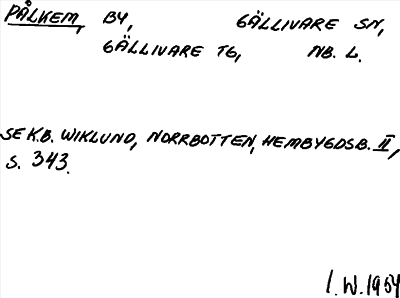 PÅLKEM, BY, GÄLLIVARE SN,
GÄLLIVARE TG, NB. L.
SE K.B. WIKLUND, NORRBOTTEN, HEMBYGDSB. II,
S. 343.
I. W. 1954